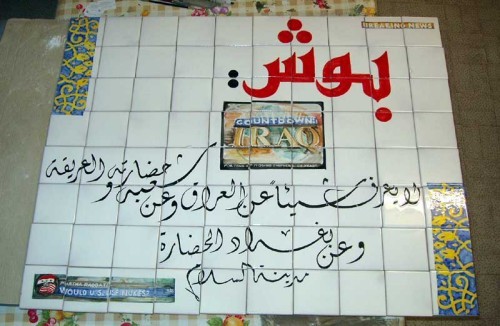 BREAKING NEWS
بوش:
COUNTDOWN:
IRAQ
لا يعرف شيئاً عن العراق وعن شعبه و
حضارته العريقة
وعن بغداد الحضارة
مدينة السلام
WOULD U.S. USE NUKES?